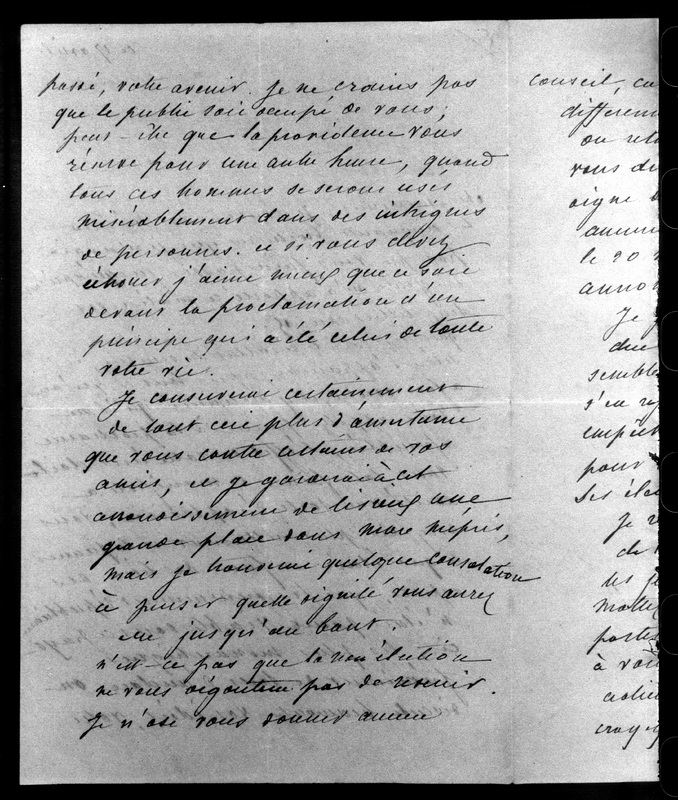 passé, votre avenir. Je ne crains pas
que le public soit occupé de vous ;
peut-être que la providence vous
réserve pour une autre heure, quand
tous ces hommes se seront usés
misérablement dans des intrigues
de personnes. et si vous devez
échouer j'aime mieux que ce soit
devant la proclamation d'un
principe qui a été celui de toute
votre vie.
Je conserverai certainement
de tout ceci plus d'amertume
que vous contre certains de vos
amis, et je garderai à cet
arrondissement de une
grande place dans mon mépris,
mais je trouverai quelque consolation
à penser quelle dignité vous aurez
eue jusqu'au bout.
n'est-ce pas que la non élection
ne vous dégoûtera pas de revenir.
Je n'ose vous donner aucun
conseil, ca
différen
ou
vous
le 20
anno
Je
semble
s'en
empêt
pour
Je
de
les
parti
à voir